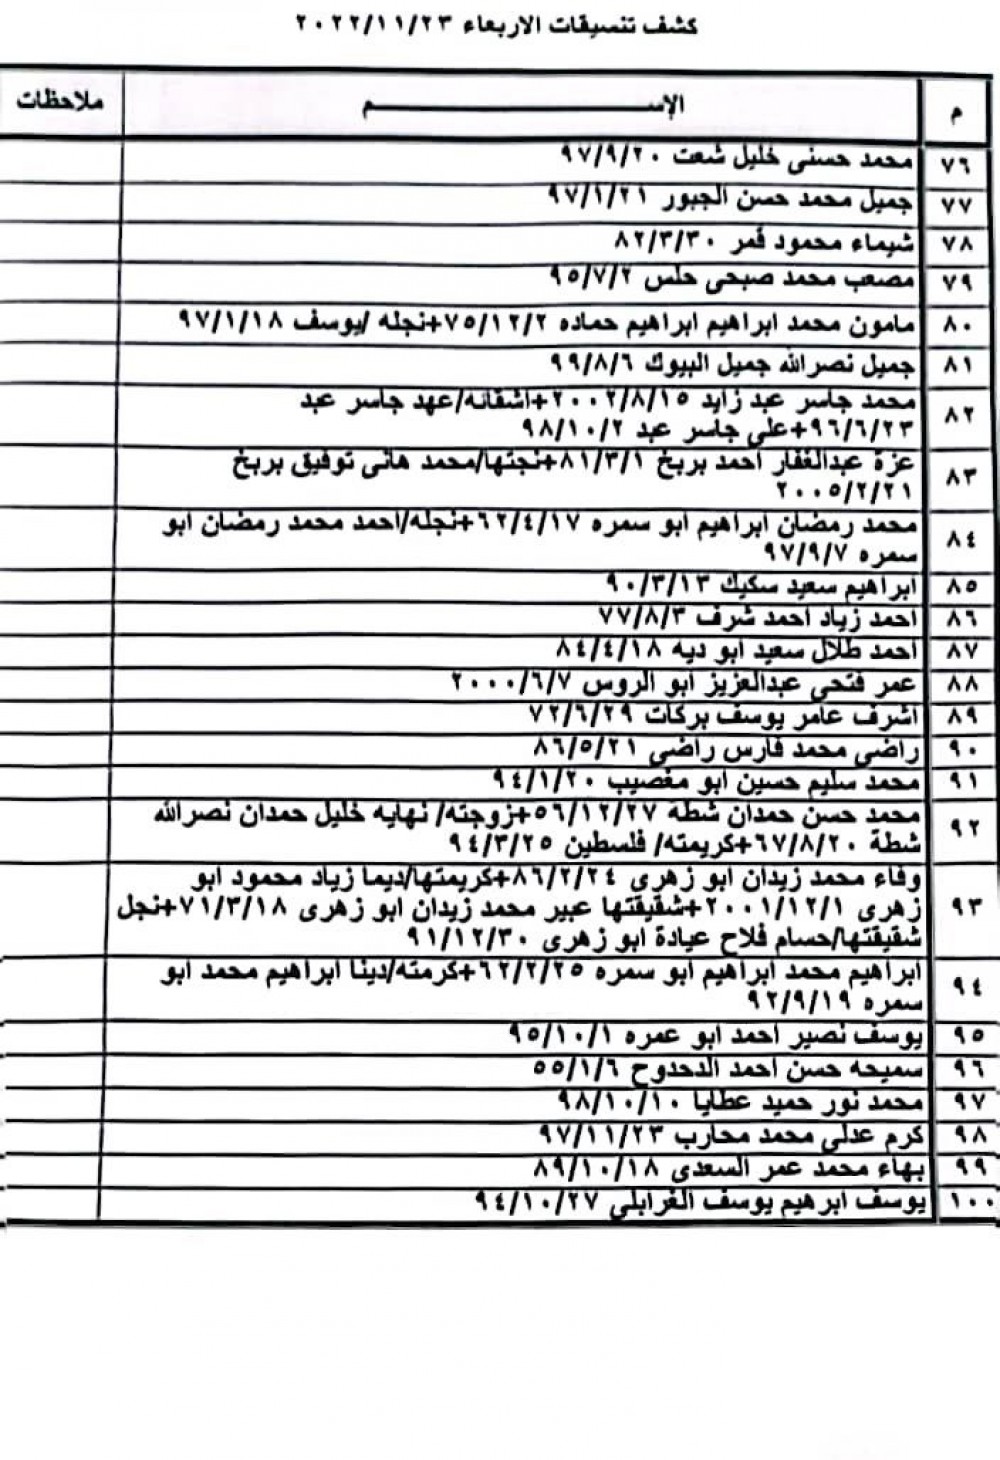 كشف تنسيقات الاربعاء ٢٠٢٢/١١/٢٣
م الإســـــــم ملاحظات
٧٦ محمد حسنى خليل شعت ٩٧/٩/٢٠
٧٧ جميل محمد حسن الجبور ٩٧/١/٢١
٧٨ شيماء محمود قمر ٨٢/٣/٣٠
٧٩ مصعب محمد صبحى حلس ٩٥/٧/٢
٨٠ مامون محمد ابراهيم ابراهيم حماده ٧٥/١٢/٢+نجله /يوسف ٩٧/١/١٨
٨١ جميل نصرالله جميل البيوك ٩٩/٨/٦
٨٢ محمد جاسر عبد زايد ٢٠٠٢/٨/١٥+اشقائه/عهد جاسر عبد
٩٦/٦/٢٣+على جاسر عبد ٩٨/١٠/٢
٨٣ عزة عبدالغفار احمد بربخ ٨١/٣/١+نجتها/محمد هانى توفيق بربخ
٢٠٠٥/٢/٢١
٨٤ محمد رمضان ابراهيم ابو سمره ٦٢/٤/١٧+نجله/احمد محمد رمضان ابو
سمره ٩٧/٩/٧
٨٥ ابراهيم سعيد سكيك ٩٠/٣/١٣
٨٦ احمد زياد احمد شرف ٧٧/٨/٣
٨٧ احمد طلال سعيد ابو ديه ٨٤/٤/١٨
٨٨ عمر فتحى عبدالعزيز ابو الروس ٢٠٠٠/٦/٧
٨٩ اشرف عامر يوسف بركات ٧٢/٦/٢٩
٩٠ راضى محمد فارس راضى ٨٦/٥/٢١
٩١ محمد سليم حسين ابو مغصيب ٩٤/١/٢٠
٩٢ محمد حسن حمدان شطة ٥٦/١٢/٢٧+زوجته/ نهايه خليل حمدان نصرالله
شطة ٦٧/٨/٢٠+كريمته/ فلسطين ٩٤/٣/٢٥
٩٣ وفاء محمد زيدان ابو زهرى ٨٦/٢/٢٤+كريمتها/ديما زياد محمود ابو
زهرى ٢٠٠١/١٢/١+شقيقتها عبير محمد زيدان ابو زهرى ٧١/٣/١٨+نجل
شقيقتها/حسام فلاح عيادة ابو زهرى ٩١/١٢/٣٠
٩٤ ابراهيم محمد ابراهيم ابو سمره ٦٢/٢/٢٥+كرمته/دينا ابراهيم محمد ابو
سمره ٩٢/٩/١٩
٩٥ يوسف نصير احمد ابو عمره ٩٥/١٠/١
٩٦ سميحه حسن احمد الدحدوح ٥٥/١/٦
٩٧ محمد نور حميد عطايا ٩٨/١٠/١٠
٩٨ كرم عدلى محمد محارب ٩٧/١١/٢٣
٩٩ بهاء محمد عمر السعدى ٨٩/١٠/١٨
١٠٠ يوسف ابرهيم يوسف الغرابلي ٩٤/١٠/٢٧